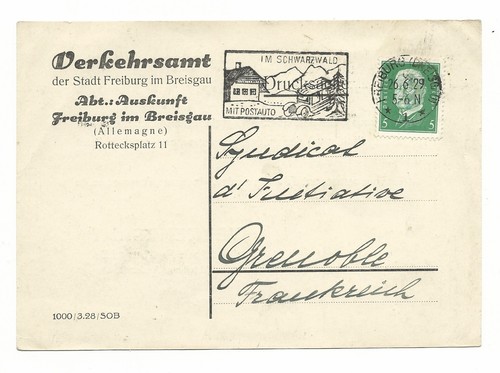 Verkehrsamt
der Stadt Freiburg im Breisgau
Abt.: Auskunft
Freiburg im Breisgau
(Allemagne)
Rottecksplatz 11
IM SCHWARZWALD
Drucksache
MIT POSTAUTO
FREIBURG
6.6.29
5-6 N
5 5
Syndicat
d'Initiative
Grenoble
Frankreich
1000/3.28/SOB